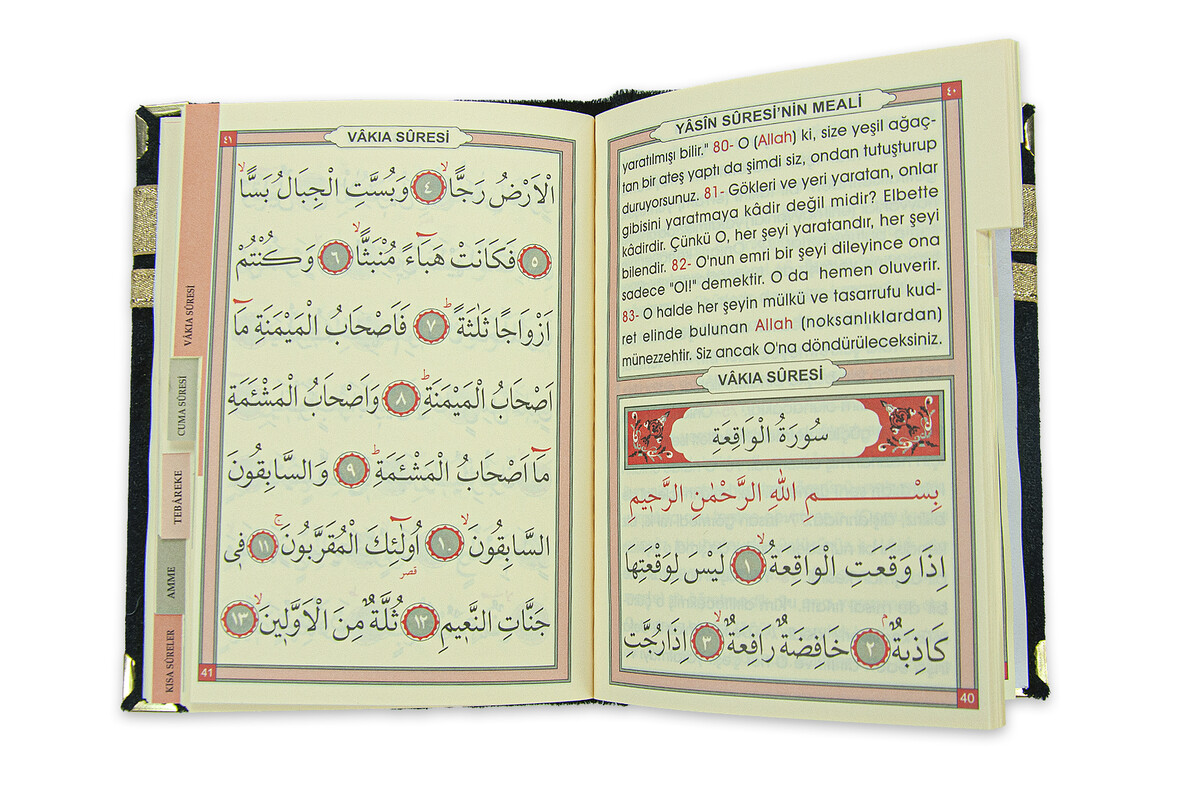 ٤٠
YÂSÎN SÛRESİ'NİN MEALİ
yaratılmışı bilir." 80- O (Allah) ki, size yeşil ağaç-
tan bir ateş yaptı da şimdi siz, ondan tutuşturup
duruyorsunuz. 81- Gökleri ve yeri yaratan, onlar
gibisini yaratmaya kâdir değil midir? Elbette
kâdirdir. Çünkü O, her şeyi yaratandır, her şeyi
bilendir. 82- O'nun emri bir şeyi dileyince ona
sadece "Ol!" demektir. O da hemen oluverir.
83- O halde her şeyin mülkü ve tasarrufu kud-
ret elinde bulunan Allah (noksanlıklardan)
münezzehtir. Siz ancak O'na döndürüleceksiniz.
VÂKIA SÛRESİ
سُورَةُ الْوَاقِعَةِ
بِسْمِ اللّٰهِ الرَّحْمٰنِ الرَّحِيمِ
اِذَا وَقَعَتِ الْوَاقِعَةُۙ ١ لَيْسَ لِوَقْعَتِهَا
كَاذِبَةٌۢ ٢ خَافِضَةٌ رَافِعَةٌۙ ٣ اِذَا رُجَّتِ
40
٤١
VÂKIA SÛRESİ
الْاَرْضُ رَجًّاۙ ٤ وَبُسَّتِ الْجِبَالُ بَسًّاۙ
٥ فَكَانَتْ هَبَٓاءً مُنْبَثًّاۙ ٦ وَكُنْتُمْ
اَزْوَاجًا ثَلٰثَةًۜ ٧ فَاَصْحَابُ الْمَيْمَنَةِ مَٓا
اَصْحَابُ الْمَيْمَنَةِۜ ٨ وَاَصْحَابُ الْمَشْـَٔمَةِ
مَٓا اَصْحَابُ الْمَشْـَٔمَةِۜ ٩ وَالسَّابِقُونَ
السَّابِقُونَۙ ١٠ اُولٰٓئِكَ الْمُقَرَّبُونَۚ ١١ فِي
قصر
جَنَّاتِ النَّعِيمِ ١٢ ثُلَّةٌ مِنَ الْاَوَّلِينَۙ ١٣
41
VÂKIA SÛRESİ
CUMA SÛRESİ
TEBÂREKE
AMME
KISA SÛRELER